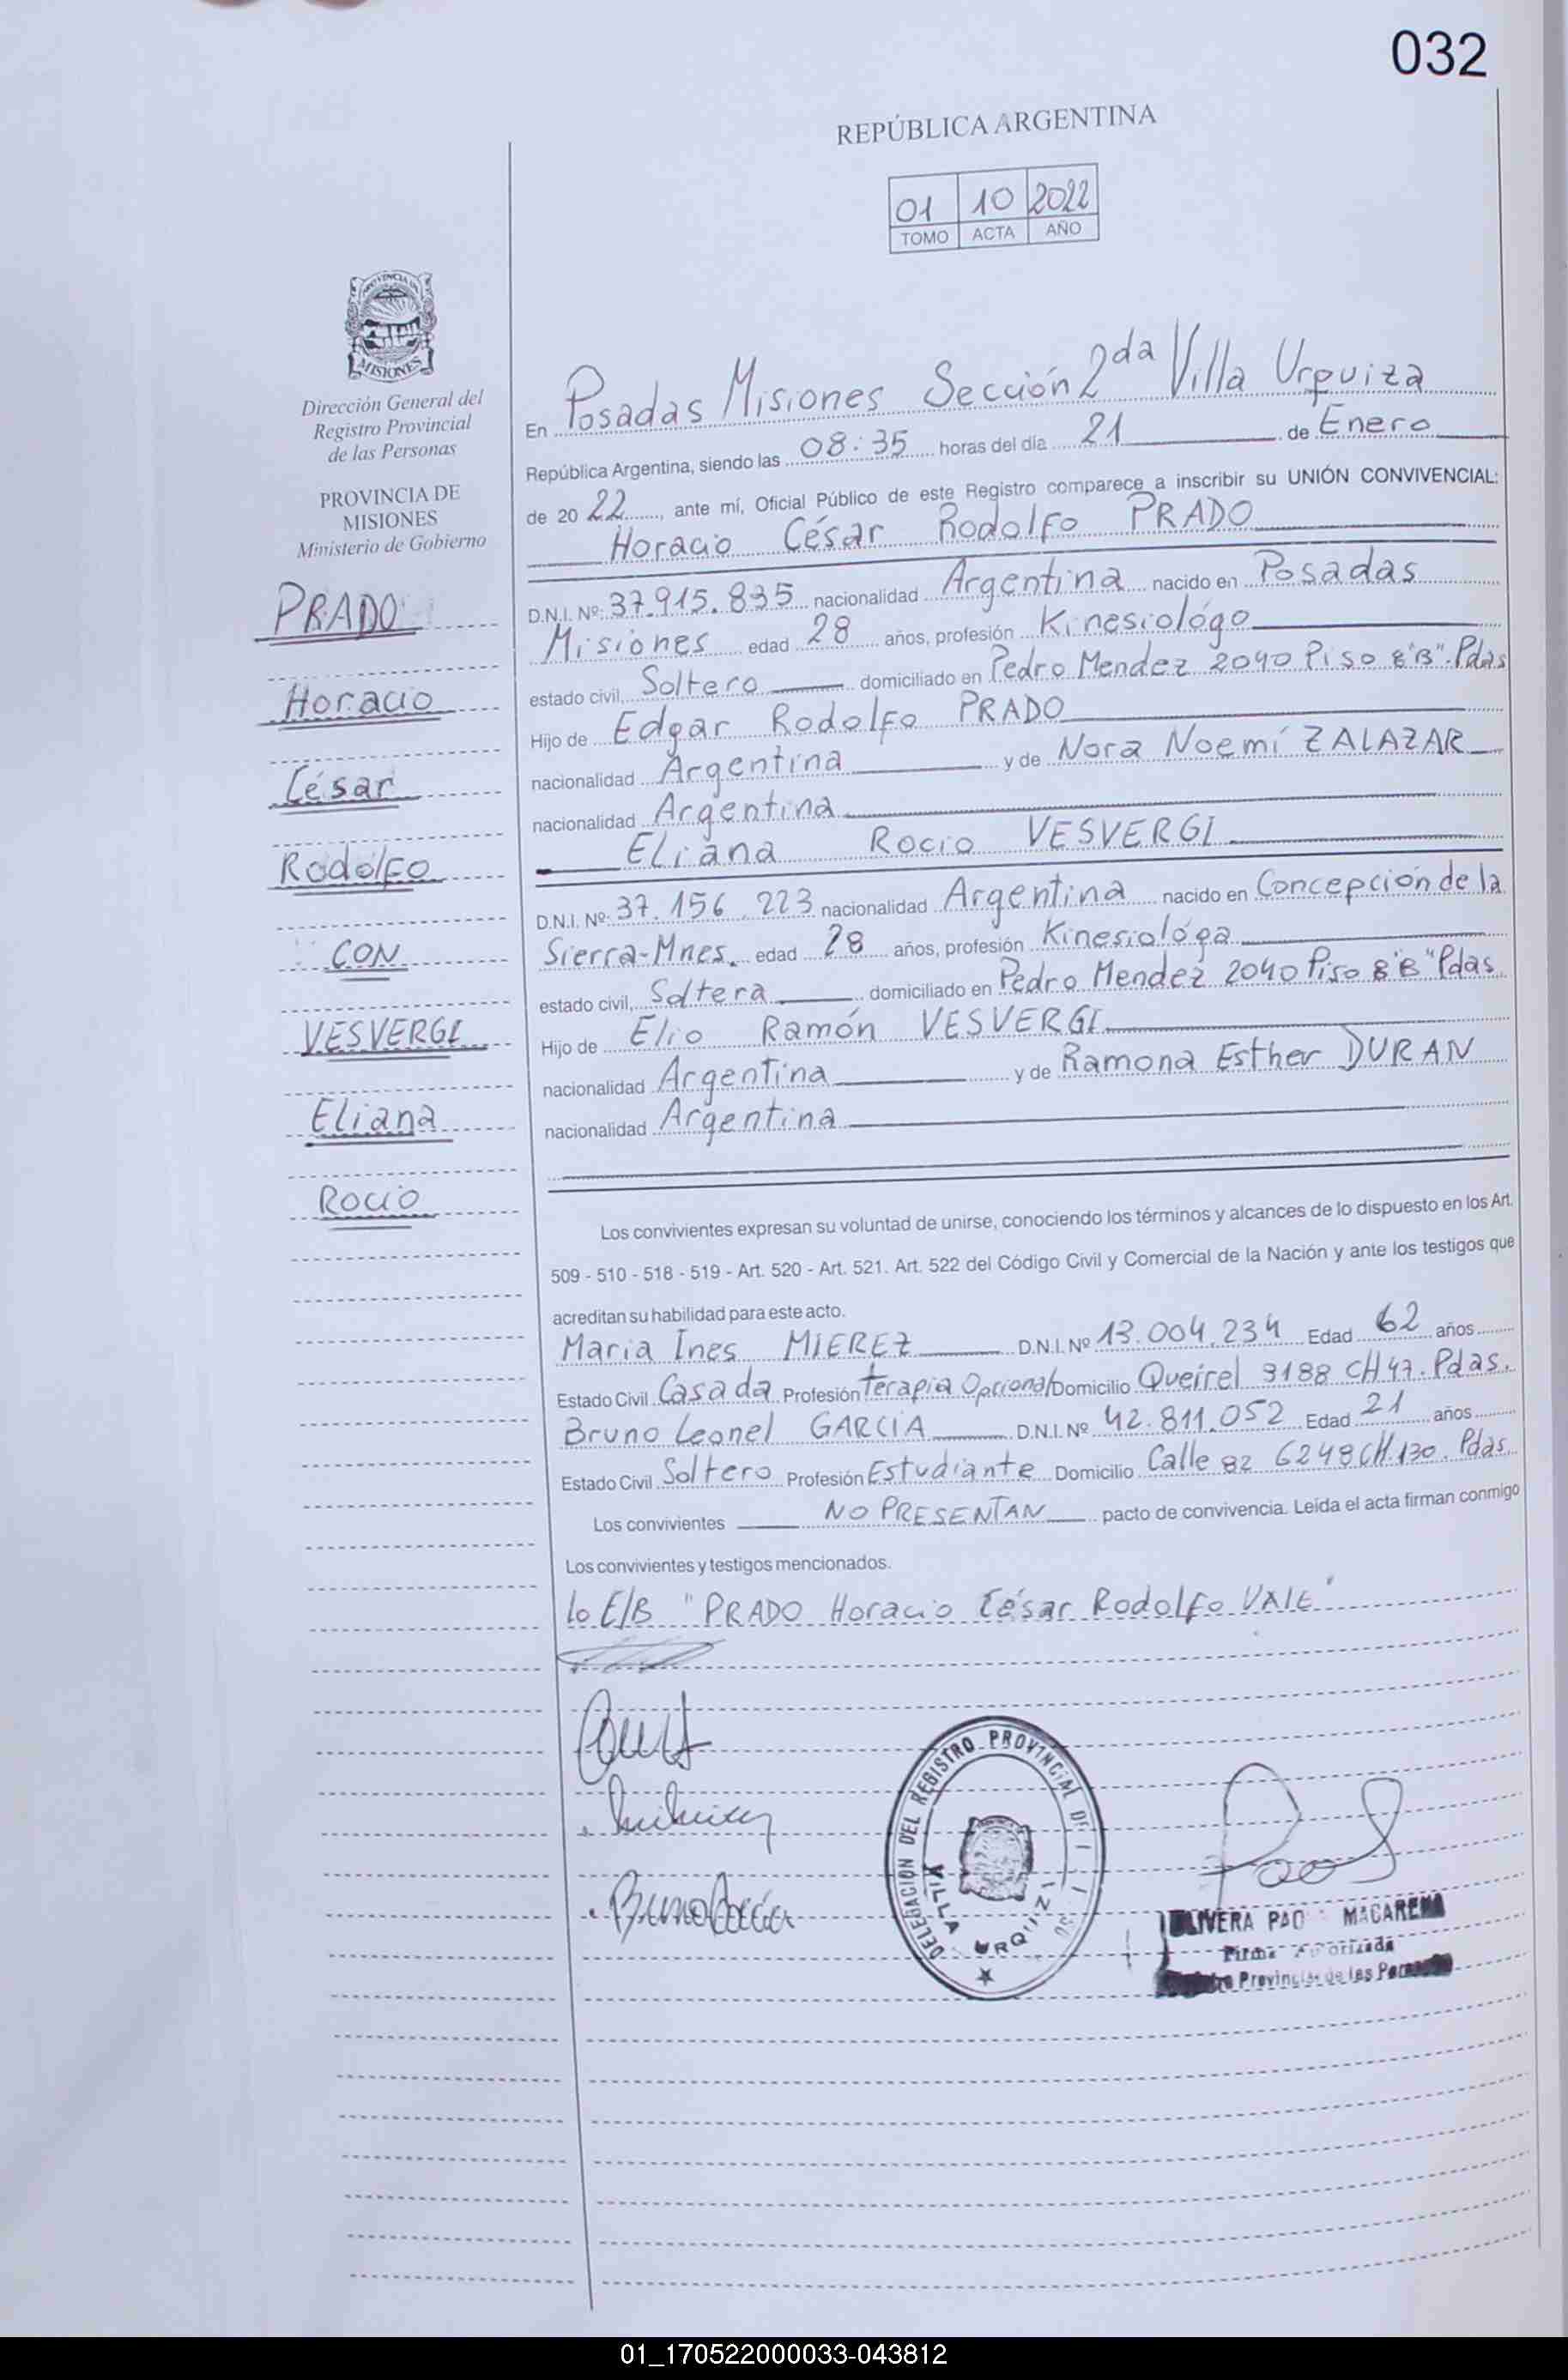 032
REPÚBLICA ARGENTINA
01 10 2022
TOMO ACTA AÑO
PROVINCIA DE
MISIONES
Dirección General del
Registro Provincial
de las Personas
PROVINCIA DE
MISIONES
Ministerio de Gobierno
PRADO
Horacio
César
Rodolfo
CON
VESVERGI
Eliana
Rocio
En Posadas Misiones Sección 2da Villa Urquiza
República Argentina, siendo las 08:35 horas del día 21 de Enero
de 20 22, ante mí, Oficial Público de este Registro comparece a inscribir su UNIÓN CONVIVENCIAL:
Horacio César Rodolfo PRADO
D.N.I. Nº: 37.915.835 nacionalidad Argentina nacido en Posadas
Misiones edad 28 años, profesión Kinesiológo
estado civil, Soltero domiciliado en Pedro Mendez 2040 Piso 8 "B". Pdas
Hijo de Edgar Rodolfo PRADO
nacionalidad Argentina y de Nora Noemí ZALAZAR
nacionalidad Argentina
Eliana Rocio VESVERGI
D.N.I. Nº: 37.156.223 nacionalidad Argentina nacido en Concepción de la
Sierra-Mnes. edad 28 años, profesión Kinesiológa
estado civil, Soltera domiciliado en Pedro Mendez 2040 Piso 8 "B" Pdas
Hijo de Elio Ramón VESVERGI
nacionalidad Argentina y de Ramona Esther DURAN
nacionalidad Argentina
Los convivientes expresan su voluntad de unirse, conociendo los términos y alcances de lo dispuesto en los Art.
509 - 510 - 518 - 519 - Art. 520 - Art. 521. Art. 522 del Código Civil y Comercial de la Nación y ante los testigos que
acreditan su habilidad para este acto.
Maria Ines MIEREZ D.N.I. Nº 13.004.234 Edad 62 años
Estado Civil Casada Profesión Terapia Opcional Domicilio Queirel 3188 CH 47. Pdas.
Bruno Leonel GARCIA D.N.I. Nº 42.811.052 Edad 21 años
Estado Civil Soltero Profesión Estudiante Domicilio Calle 82 6248 CH.130. Pdas
Los convivientes NO PRESENTAN pacto de convivencia. Leída el acta firman conmigo
Los convivientes y testigos mencionados.
lo E/B "PRADO Horacio César Rodolfo VALE"
Bruno García
DELEGACION DEL REGISTRO PROVINCIAL DE
VILLA URQUIZA
OLIVERA MACARENA
Firma Autorizada
Provincial de las Personas
01_170522000033-043812